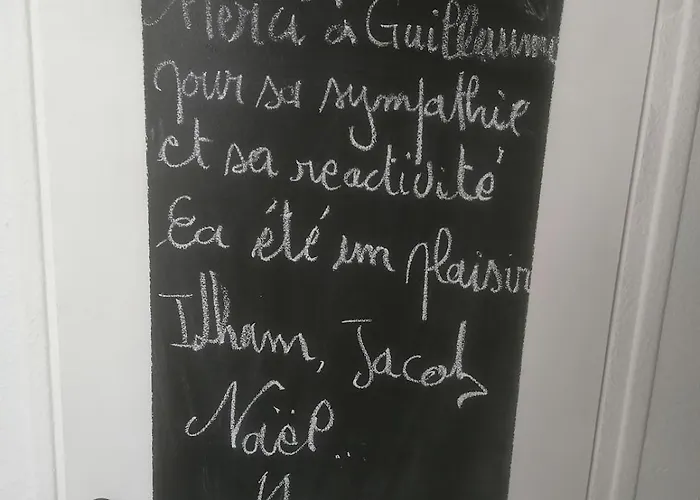 Merci à Guillaume
pour sa sympathie
et sa reactivité
Ça été un plaisir
Ilham, Jacob
Naïel..